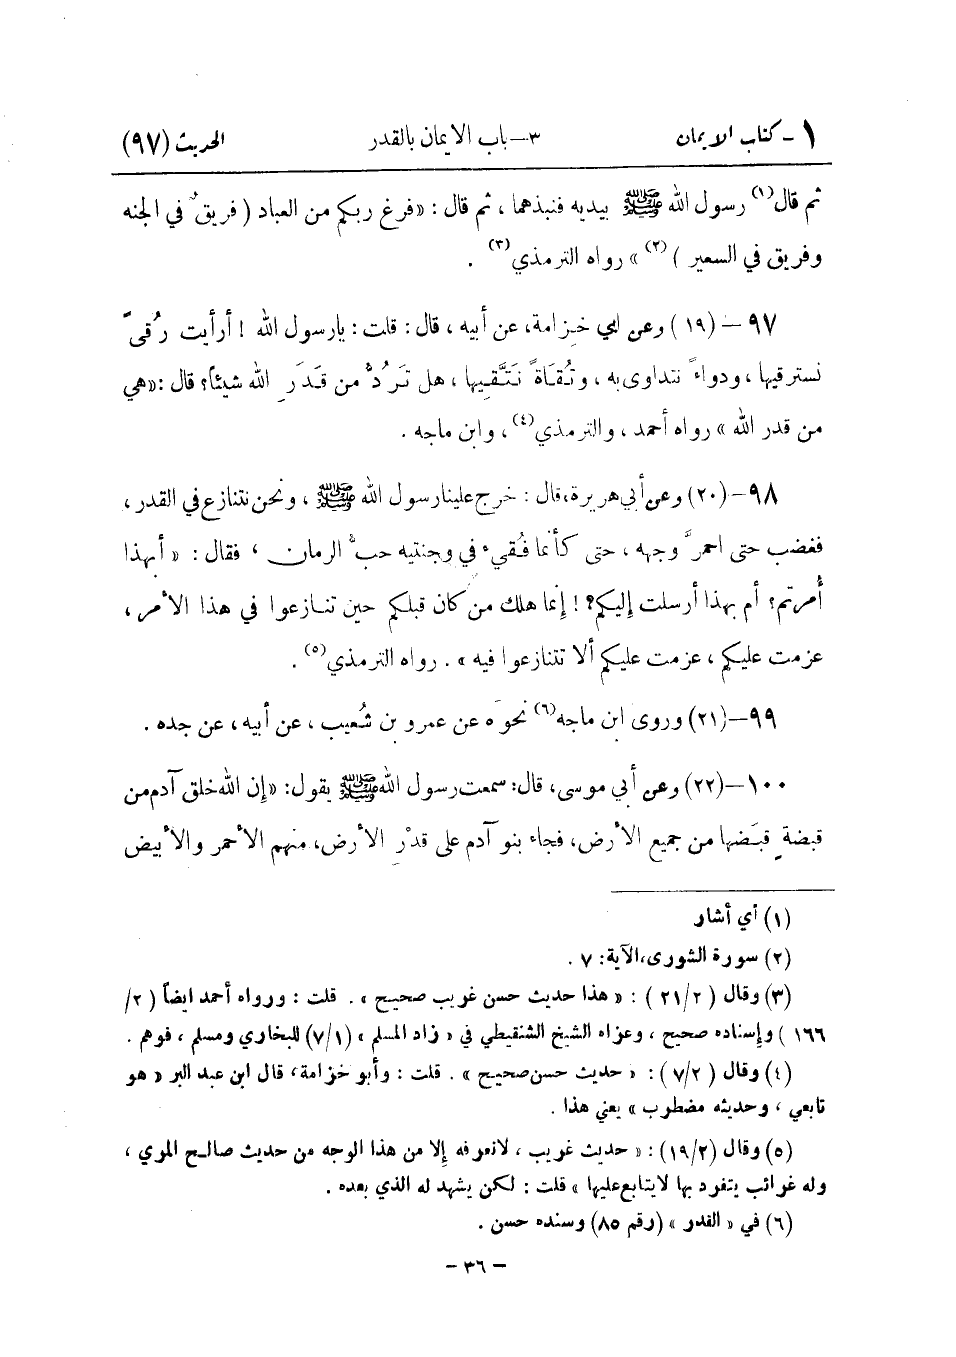 ١ - كتاب الإيمان ٣- باب الإيمان بالقدر الحديث (٩٧)
ثم قال(١) رسول الله ﷺ بيديه فنبذهما ، ثم قال : «فرغ ربكم من العباد ( فريقٌ في الجنه
وفريق في السعير )(٢) » رواه الترمذي(٣) .
٩٧ - (١٩) وعن ابي خزامة، عن أبيه ، قال : قلت : يارسول الله ! أرأيت رُقىً
نسترقيها ، ودواءً نتداوى به ، وتُقاةً نَتَّقيها ، هل تَرُدُّ من قَدَرِ الله شيئاً؟ قال :«هي
من قدر الله » رواه أحمد ، والترمذي(٤) ، وابن ماجه .
٩٨ - (٢٠) وعن أبي هريرة، قال : خرج علينا رسول الله ﷺ ، ونحن نتنازع في القدر ،
فغضب حتى احمرَّ وجهه ، حتى كأنما فُقيء في وجنتيه حبُّ الرمان ، فقال : « أبهذا
أُمرتم؟ أم بهذا أرسلت إليكم؟ ! إنما هلك من كان قبلكم حين تنازعوا في هذا الأمر ،
عزمت عليكم ، عزمت عليكم ألا تتنازعوا فيه » . رواه الترمذي(٥) .
٩٩ - (٢١) وروى ابن ماجه(٦) نحوَه عن عمرو بن شُعيب ، عن أبيه ، عن جده .
١٠٠ - (٢٢) وعن أبي موسى، قال: سمعت رسول الله ﷺ يقول: «إن الله خلق آدم من
قبضةٍ قبَضها من جميع الأرض، فجاء بنو آدم على قدْرِ الأرض، منهم الأحمر والأبيض
(١) أي أشار
(٢) سورة الشورى،الآية: ٧ .
(٣) وقال ( ٢١/٢ ) : « هذا حديث حسن غريب صحيح » . قلت : ورواه أحمد ايضاً ( ٢/
١٦٦ ) وإسناده صحيح ، وعزاه الشيخ الشنقيطي في « زاد المسلم » (٧/١) للبخاري ومسلم ، فوهم .
(٤) وقال ( ٧/٢ ) : « حديث حسن صحيح » . قلت : وأبو خزامة، قال ابن عبد البر « هو
تابعي ، وحديثه مضطرب » يعني هذا .
(٥) وقال (١٩/٢) : « حديث غريب ، لانعرفه إلا من هذا الوجه من حديث صالح المري ،
وله غرائب يتفرد بها لايتابع عليها » قلت : لكن يشهد له الذي بعده .
(٦) في « القدر » (رقم ٨٥) وسنده حسن .
- ٣٦ -